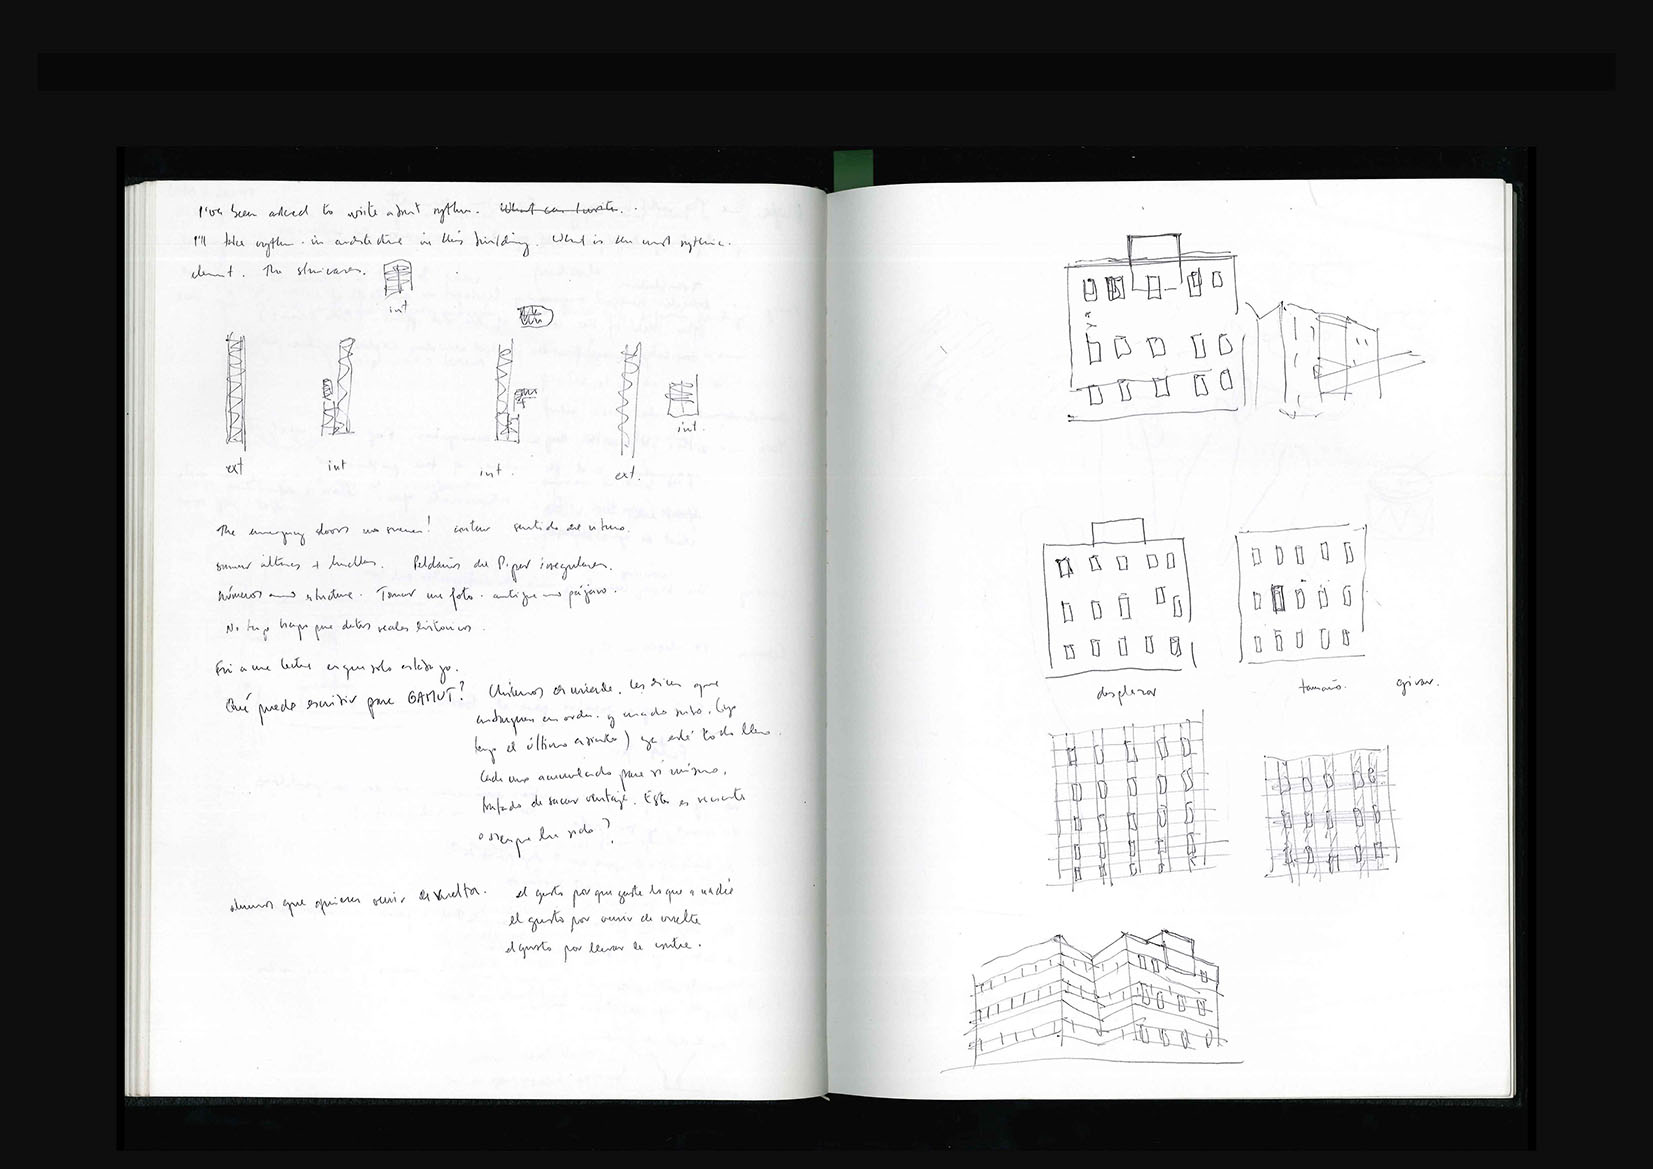 I've been asked to write about rythm. What can I write.
I'll take rythm in architecture in this building. What is the most rythmic
element. The staircases.
int
ext
int
int.
ext.
int.
The emergency doors no suenan! contar sentido de
sumar alturas + huellas. Peldaños de Piper irregulares.
números estructura. Tomar una foto. antigua pájaro.
No tengo tiempo para datos reales históricos.
Fui a una lectura en que solo estaba yo.
Qué puedo escribir para GAMUT?
Les dicen que
en orden. y cuando subo. (yo
tengo el último asiento) ya está todo lleno.
Cada uno acumulando para sí mismo,
tratando de sacar ventaja. Esto es reciente
o siempre ha sido?
alumnos que quieren venir de vuelta.
el gusto por que guste lo que a nadie
el gusto por venir de vuelta
el gusto por llevar la contra.
desplazar
tamaño.
girar.